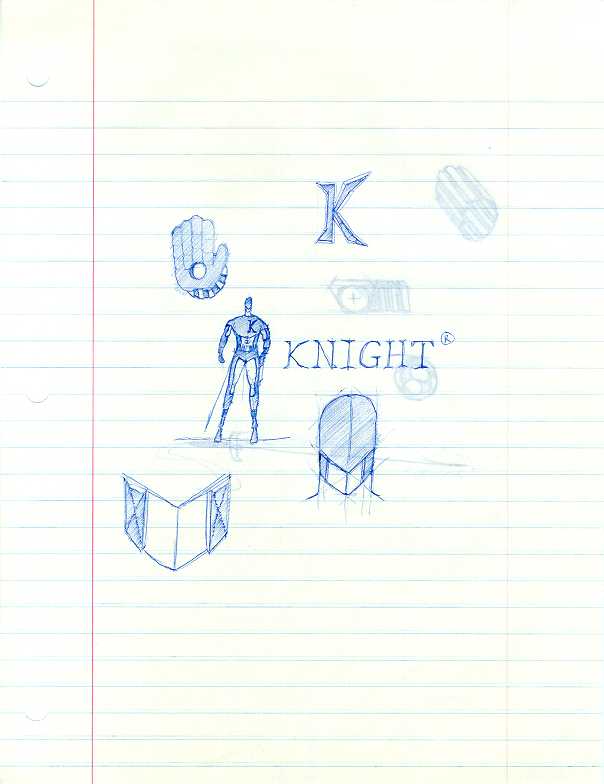 K
K
KNIGHT®